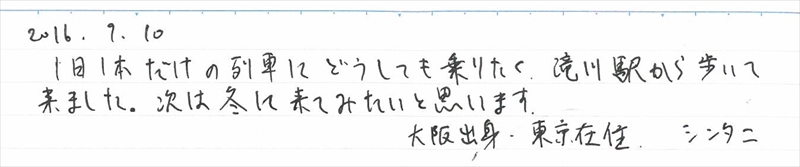 2016.9.10
1日1本だけの列車にどうしても乗りたく、滝川駅から歩いて
来ました。次は冬に来てみたいと思います。
大阪出身・東京在住 シンタニ